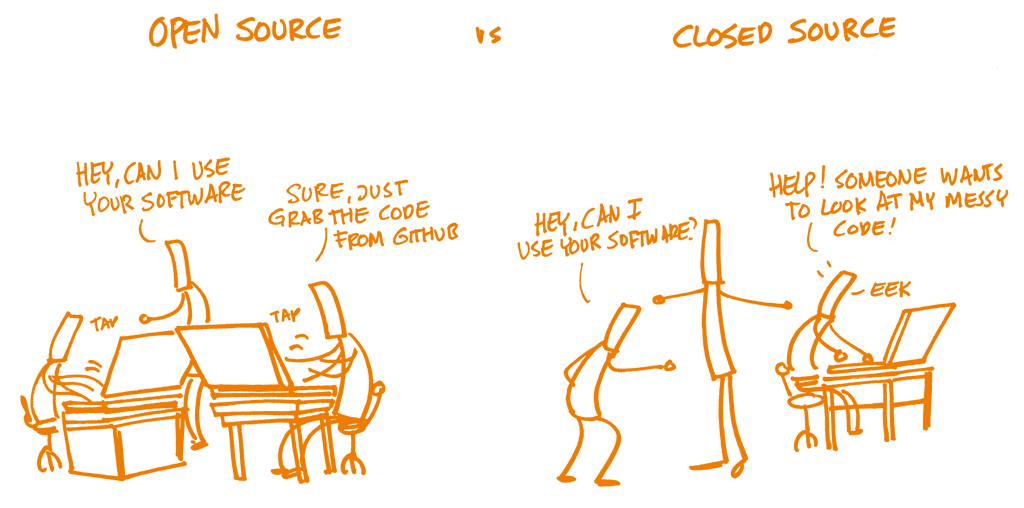 OPEN SOURCE
vs
CLOSED SOURCE
HEY, CAN I USE
YOUR SOFTWARE
SURE, JUST
GRAB THE CODE
FROM GITHUB
TAP
TAP
HEY, CAN I
USE YOUR SOFTWARE?
HELP! SOMEONE WANTS
TO LOOK AT MY MESSY
CODE!
EEK